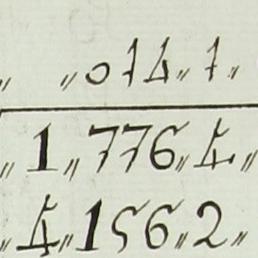 〃 〃074〃1〃
〃1〃776〃4〃
〃4〃156〃2〃